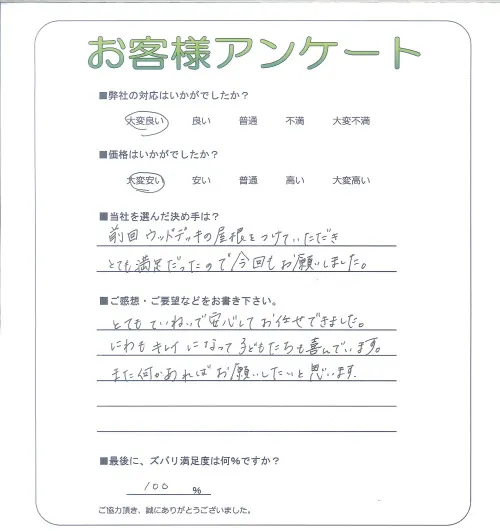 お客様アンケート
■弊社の対応はいかがでしたか？
大変良い 良い 普通 不満 大変不満
■価格はいかがでしたか？
大変安い 安い 普通 高い 大変高い
■当社を選んだ決め手は？
前回ウッドデッキの屋根をつけていただき
とても満足だったので今回もお願いしました。
■ご感想・ご要望などをお書き下さい。
とてもていねいで安心してお任せできました。
にわもキレイになって子どもたちも喜んでいます。
また何かあればお願いしたいと思います.
■最後に、ズバリ満足度は何%ですか？
100 %
ご協力頂き、誠にありがとうございました。